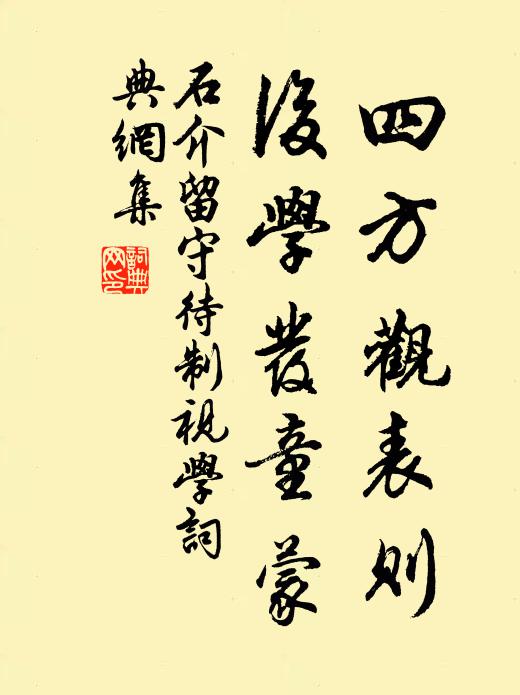 四方觀表則
後學發童蒙
石介留守待制視學詞
典網集
詞典網印